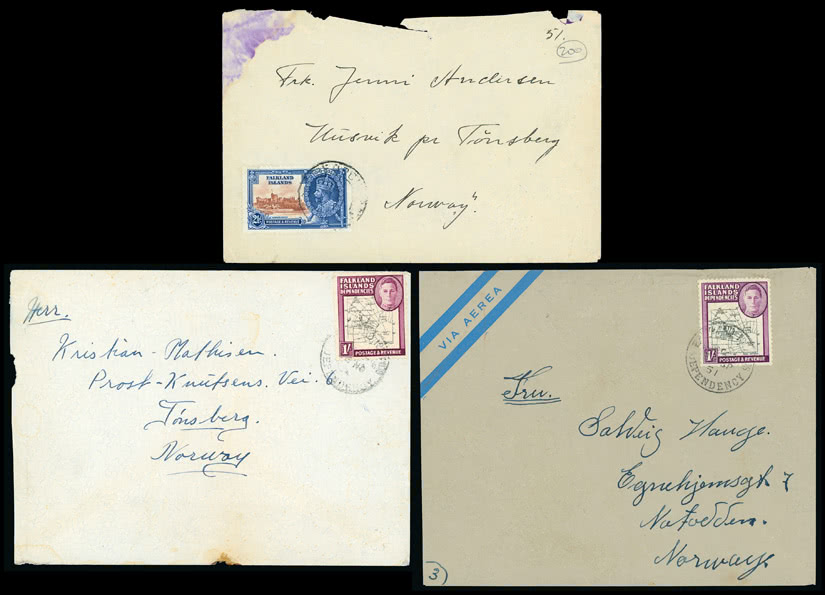 51.
200
Frk. Jenni Andersen
Husvik pr Tönsberg
Norway".
FALKLAND
ISLANDS
POSTAGE & REVENUE
Herr.
Kristian Mathisen.
Prost Knutsens Vei. 6.
Tönsberg.
Norway
FALKLAND
ISLANDS
DEPENDENCIES
1/-
POSTAGE & REVENUE
DEPENDENCY
VIA AEREA
FALKLAND
ISLANDS
DEPENDENCIES
1/-
POSTAGE & REVENUE
DEPENDENCY
51
Fru.
Solveig Hauge.
Egnehjemsgt 7
Notodden.
Norway
3